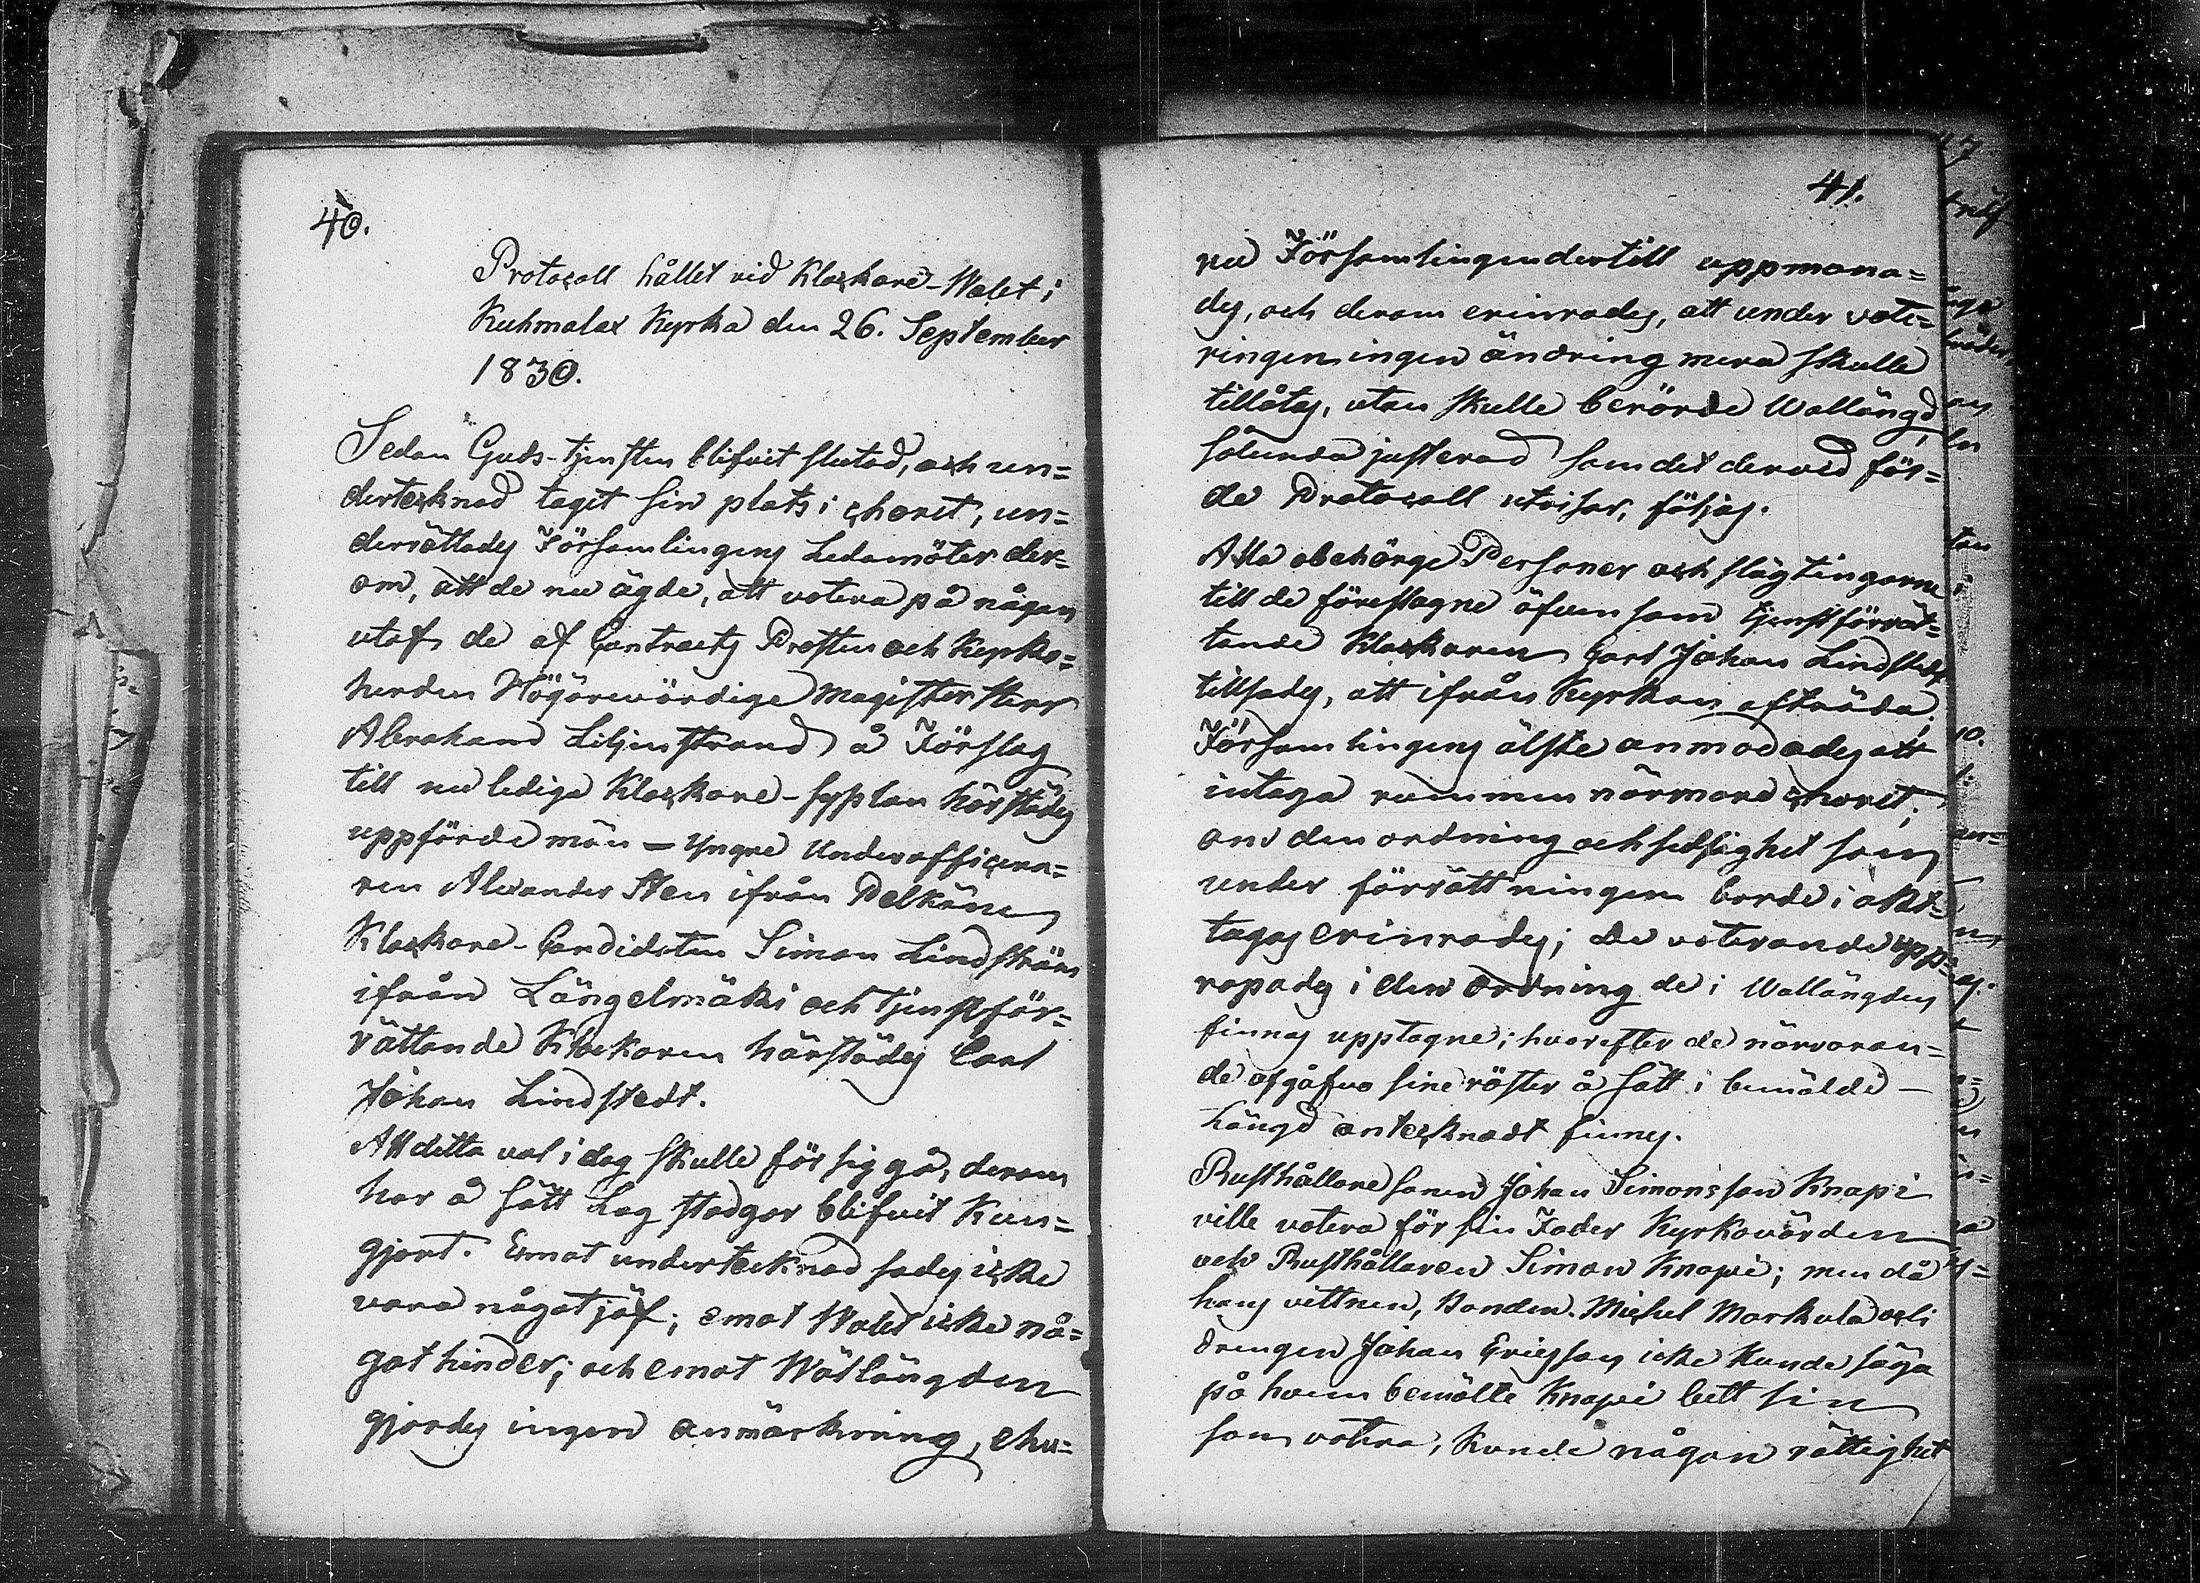 40.
Protocoll hållet vid Klockare-Walet i
Kuhmalax Kyrka den 26. September
1830.
Sedan Guds-tjensten blifvit slutad, och un=
dertecknad taget sin plats i choret, un=
derrättades Församlingens Ledamöter der=
om, att de nu ägde, att votera på någon
utaf de af Contracts Prosten och Kyrko=
herden Högärevördige Magister Herr
Abraham Liljenstrand å Förslag
till nu lediga Klockare-sysslan härstädes
uppförde män — Yngre Underofficera=
ren Alexander Sten ifrån Pelkäne
Klockare-Candidaten Simon Lindström
ifrån Längelmäki och tjenstför=
rättande Klockaren härstädes Carl
Johan Lindstedt.
Att detta val i dag skulle för sig gå, derom
har å sätt Lag stadgar blifvit kun=
gjort. Emot undertecknad sades icke
vara något jäf; emot Walet icke nå=
got hinder; och emot Wallängden
gjordes ingen anmärkning, ehu=
41.
ru Församlingen dertill uppmana=
des, och derom erinrades, att under vote=
ringen ingen ändring mera skulle
tillåtas, utan skulle berörde Wallängd,
sålunda justerad som det dervid för=
de Protocoll utvisar, följas.
Alla obehörge Personer och slägtingarne
till de föreslagne äfven som tjenstförrät=
tande Klockaren Carl Johan Lindstedt
tillsades, att ifrån Kyrkan afträda;
Församlingens älste anmodades att
intaga rummen närmare choret;
om den ordning och sedlighet som
under förrättningen borde i akt=
tagas erinrades; de voterande upp=
ropades i den ordning de i Wallängden
finnas upptagne; hvarefter de närvaran=
de afgåfvo sine röster å sätt i bemälde —
Längd antecknadt finnes.
Rusthållare sonen Johan Simonsson Knapi
ville votera för sin Fader Kyrkovärden
och Rusthållaren Simon Knapi; men då
hans vittnen, Bonden Michel Markula och
drengen Johan Ericsson icke kunde säga
på hvem bemälte Knapi bett sin
son votera, kunde någon rättighet